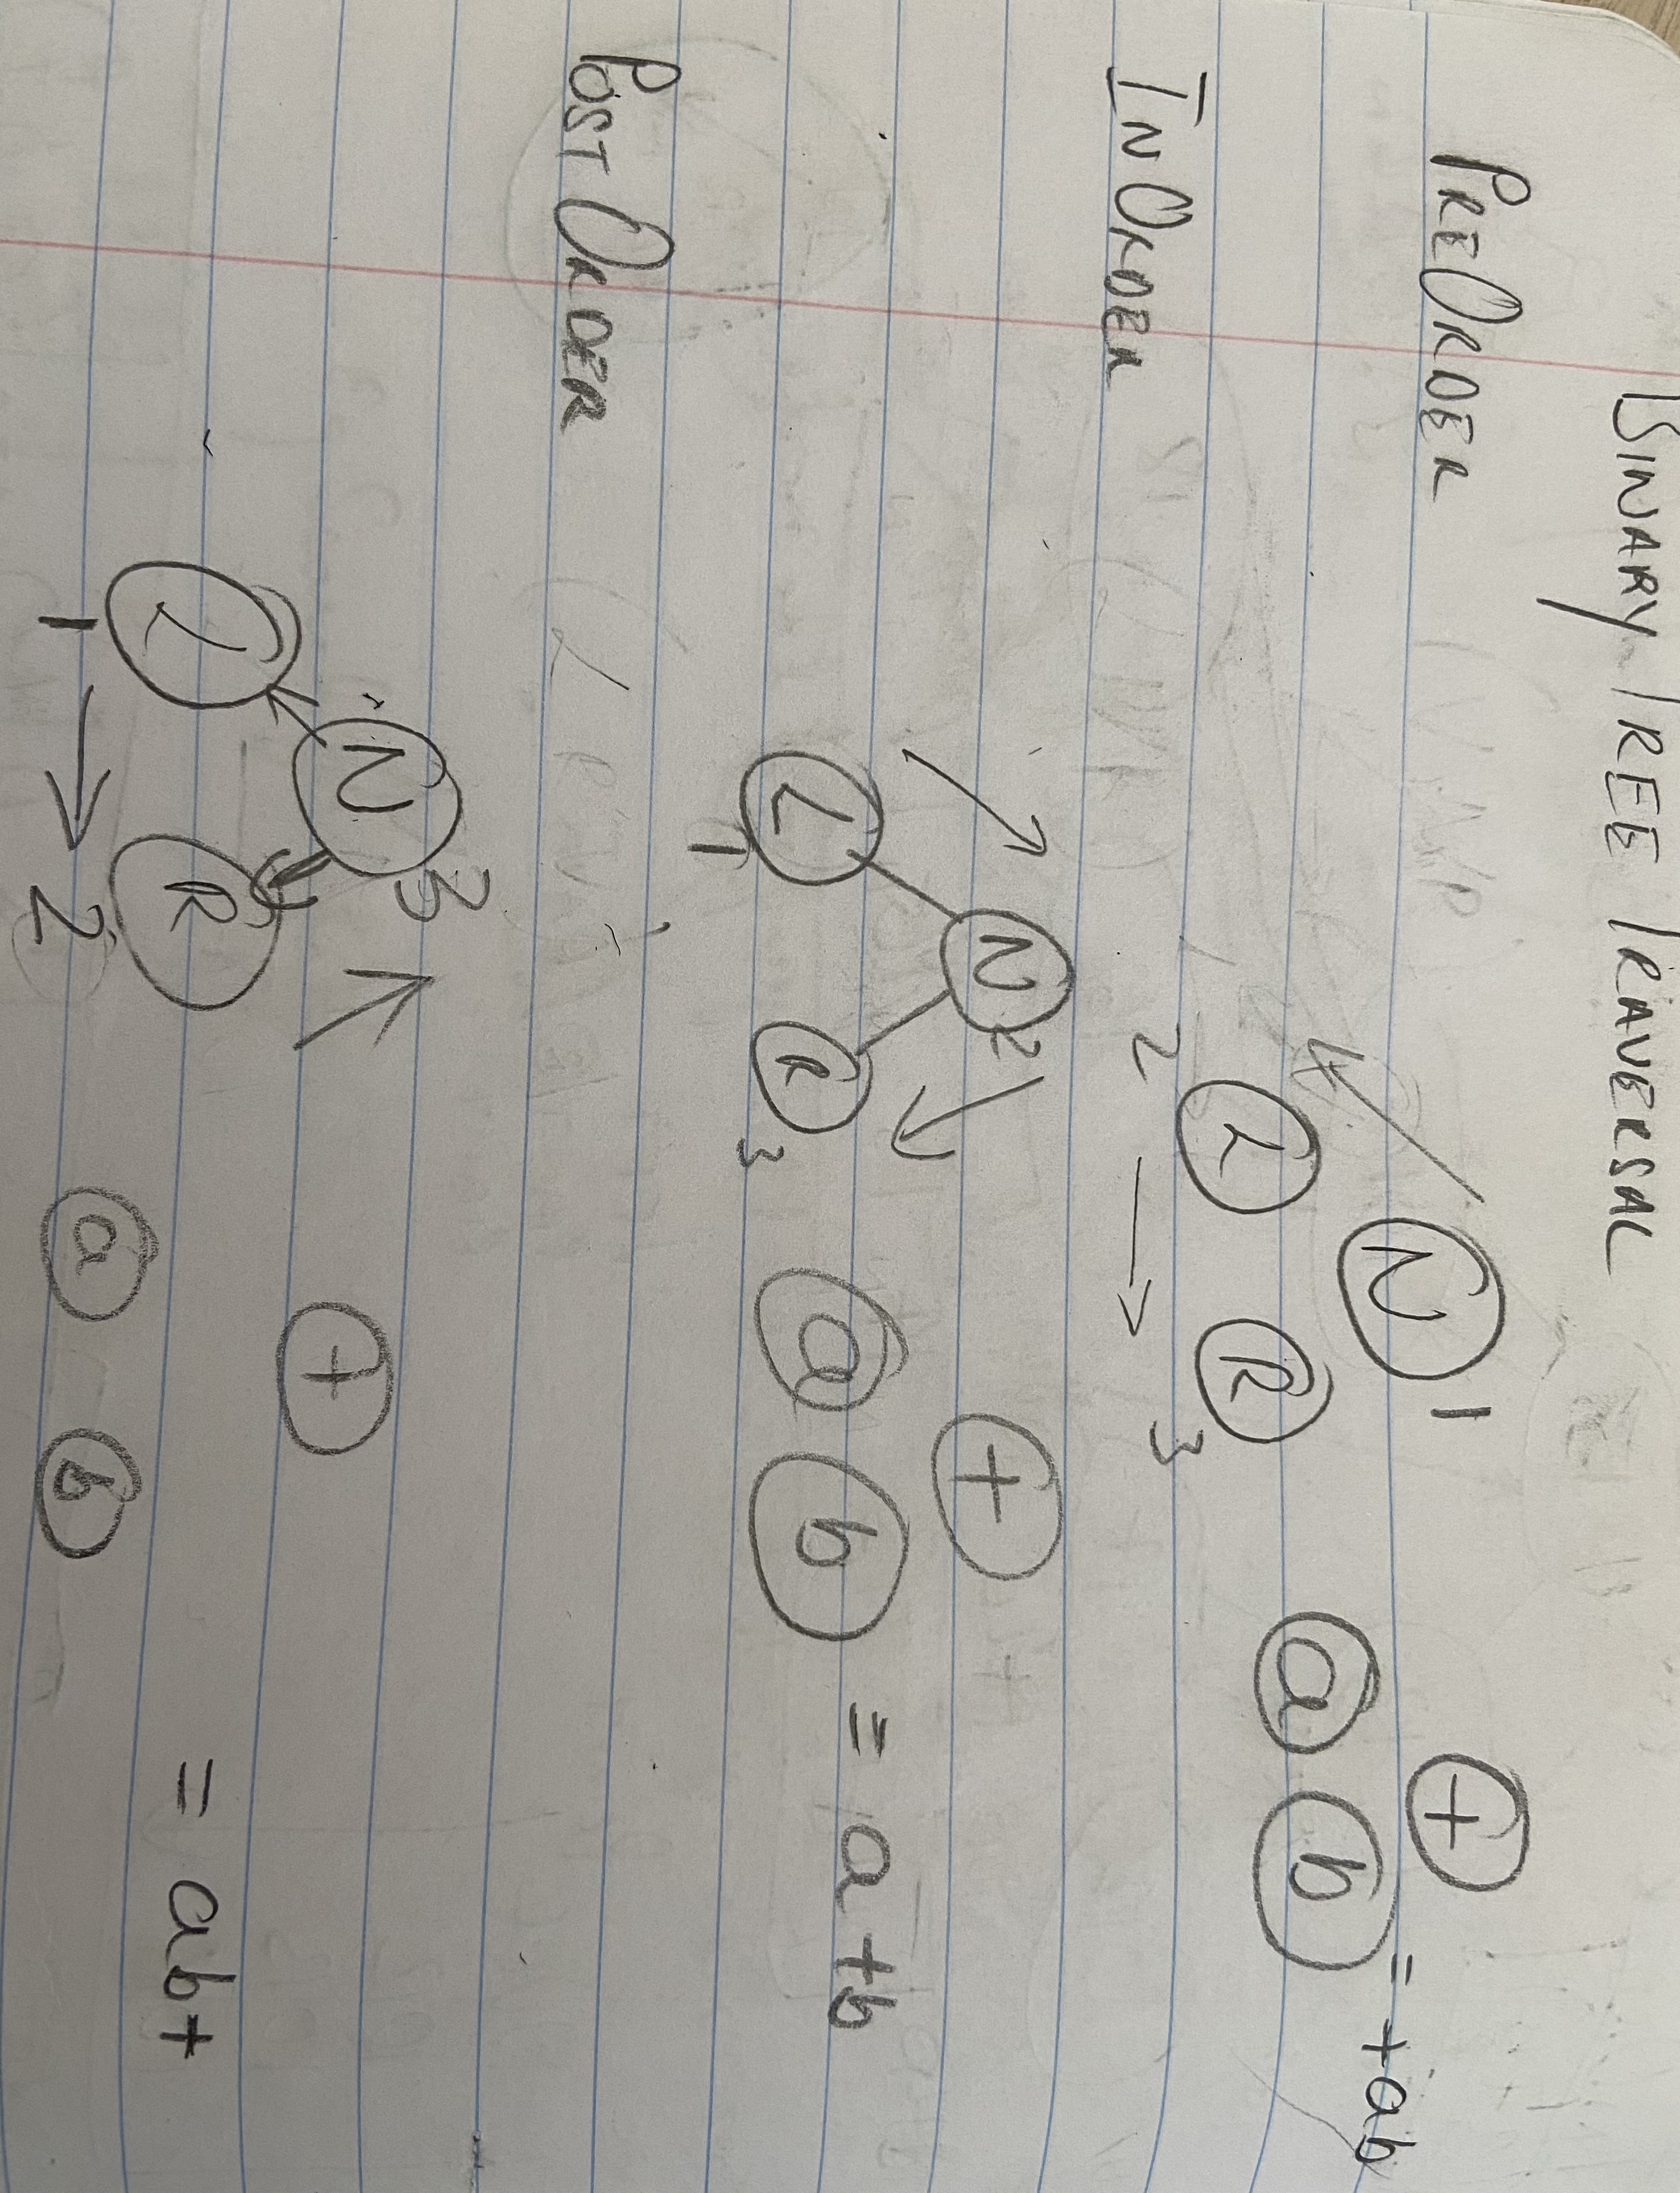 BINARY TREE TRAVERSAL
PREORDER
N 1
L R
2 → 3
+
a b = +ab
INORDER
N 2
L R
1 3
+
a b = a+b
POSTORDER
N 3
L R
1 → 2
+
a b = ab+